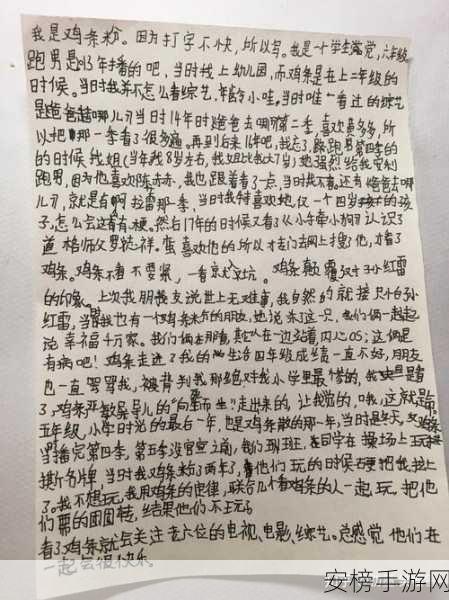 我是鸡条粉。因为打字不快,所以写。我是一学生党,六年级
跑男是13年播的吧,当时我上幼儿园,而鸡条是在上二年级的
时候。当时我并不怎么看综艺,年龄小哇。当时唯一看过的综艺
是爸爸去哪儿了,当时14年时爸爸去哪了第二季,喜欢黄多多,所
以把那一季看了很多遍。再到后来16年吧,我忘了,跑男第四季的
的时候,我姐(当年我8岁左右,我姐比我大7岁)她强烈给我安利
跑男,因为他喜欢陈赤赤,我也跟着看了一点,当时我不看。还有爸爸去哪
儿了,就是有阿拉蕾那一季,当时我特喜欢她,仅一个四岁的孩
子,怎么会这有梗。然后17年的时候又看了《小年小狗》认识了
道格师父罗志祥。蛮喜欢他的所以才去网上搜了他,才看了
鸡条。鸡条不看不要紧,一看就入坑。鸡条颠覆了对孙红雷
的印象。上次我朋友说世上无难事,我自然的就接只怕孙
红雷,当我也有一个鸡条粉的朋友,她说来了这一只,我们俩一起
说幸福千万家。我们俩在那着,其它人在一边站着,内心OS:这俩是
有病吧!鸡条走进了我的生活四年级成绩一直不好,朋友
也一直骂我,被背叛我那绝对我小学里最惨的,我是看
了,鸡条严敏导儿的“向而生”走出来的,让我觉的,哦,这就是
五年级,小学时光的最后一年,也是鸡条散的那一年,当时是冬天,
当播完第四季,第五季没官宣之前,我们班,在同学在操场上玩
撕名牌,当时我鸡条粉了两年了,看他们玩的时候硬把我拉上
了。我不想玩,我用鸡条的定律,联合几个看鸡条的人一起玩,把他
们骗的团团转,结果他们不玩了。
看了鸡条就会关注老六位的电视、电影、综艺。总感觉他们在
一起会很快乐
安榜手游网